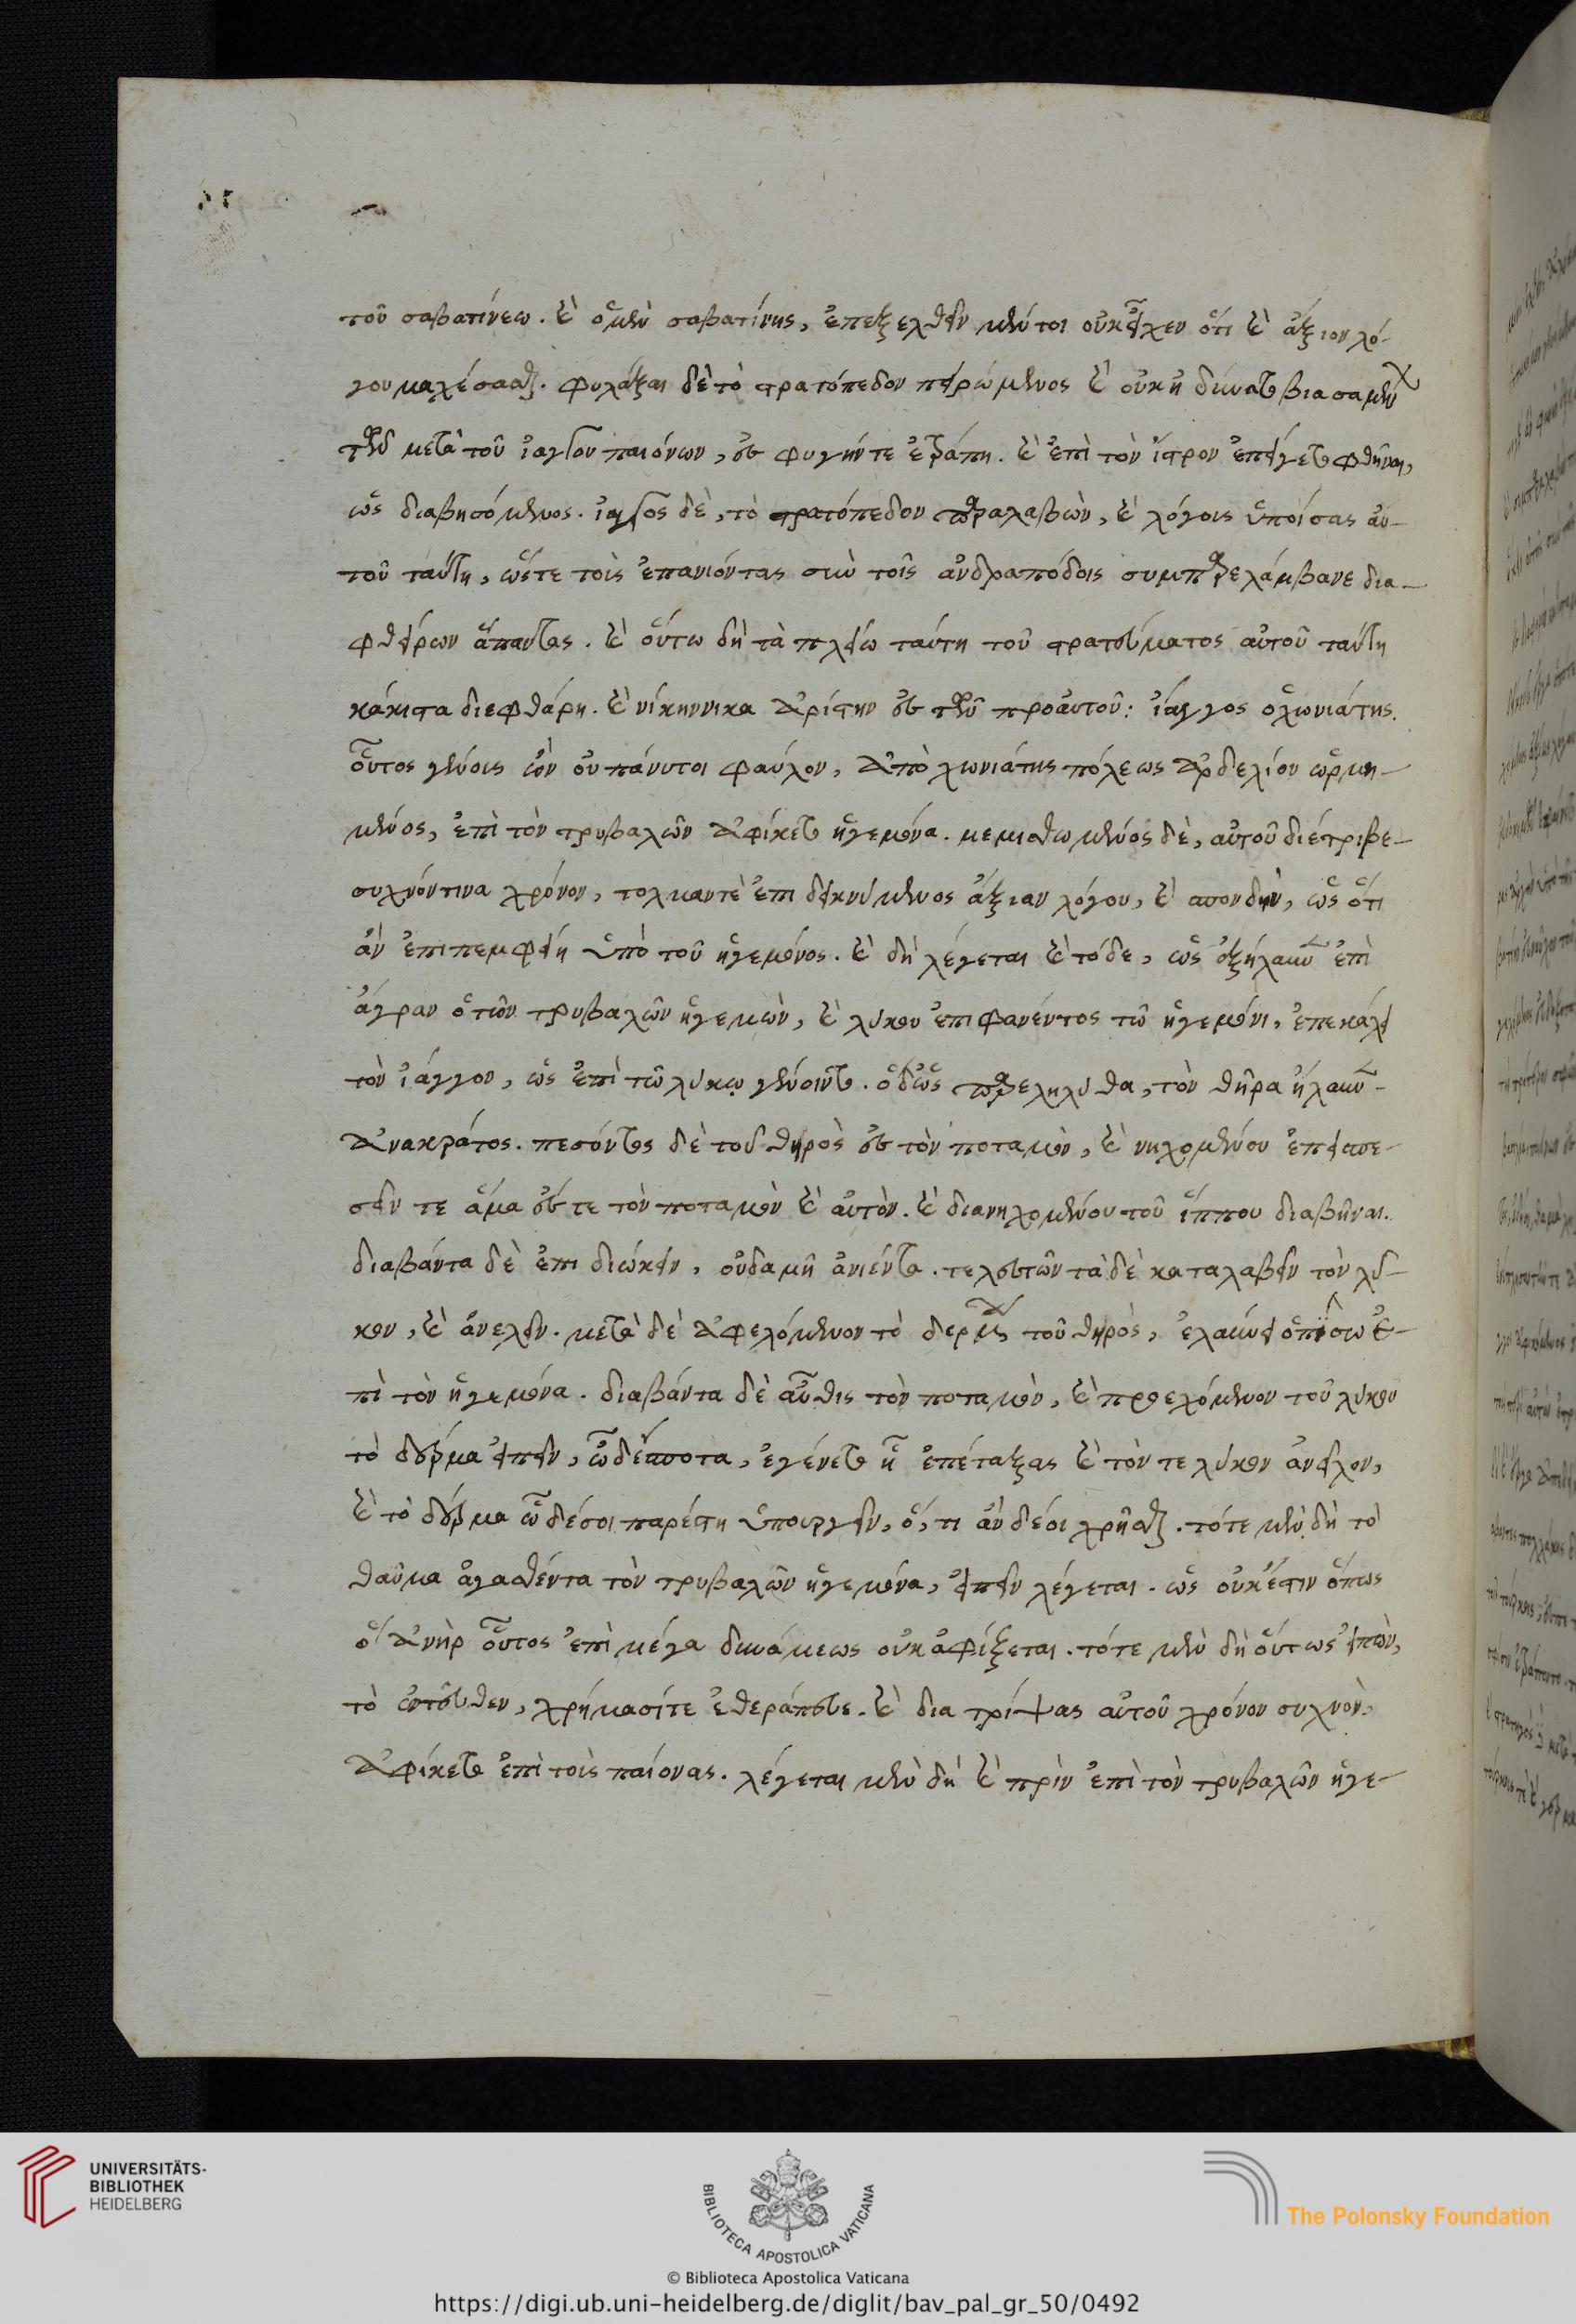 τοῦ σαβατίνεω. καὶ ὁ μὲν σαβατίνης, ἐπεξελθεῖν μέντοι οὐκ εἶχεν ὅτι καὶ ἄξιον λό-
γου μαχέσασθαι. φυλάξαι δὲ τὸ στρατόπεδον πειρώμενος καὶ οὐκ ἠδύνατο βιασαμέν
τῶν μετὰ τοῦ ἰάγγου παιόνων, ἐς φυγήν τε ἐτράπη. καὶ ἐπὶ τὸν ἴστρον ἐπείγετο φθῆναι,
ὡς διαβησόμενος. ἰάγγος δὲ, τὸ στρατόπεδον παραλαβὼν, καὶ λόχοις ὑποίσας αὐ-
τοῦ ταύτῃ, ὥστε τοὺς ἐπανιόντας σὺν τοῖς ἀνδραπόδοις συμπαρελάμβανε δια-
φθείρων ἅπαντας. καὶ οὕτω δὴ τὰ πλείω ταύτῃ τοῦ στρατεύματος αὐτοῦ ταύτῃ
κάκιστα διεφθάρη. καὶ νίκην νικᾶ ἀρίστην ἐς τῶν προ αὐτοῦ: ἰάγγος ὁ χωνιάτης.
οὗτος γένους ὢν οὐ πάνυ τοι φαύλου, ἀπὸ χωνιάτης πόλεως ἀρδελίου ὡρμη-
μένος, ἐπὶ τὸν τρυβαλῶν ἀφίκετο ἡγεμόνα. μεμισθωμένος δὲ, αὐτοῦ διέτριβε-
συχνόν τινα χρόνον, τολμαν τὲ ἐπιδεικνύμενος ἀξίαν λόγου, καὶ σπουδὴν, ὡς ὅτι
ἂν ἐπιπεμφείη ὑπὸ τοῦ ἡγεμόνος. καὶ δὴ λέγεται καὶ τόδε, ὡς ἐξήλαυνεν ἐπὶ
ἄγραν ὁ τῶν τρυβαλῶν ἡγεμὼν, καὶ λύκου ἐπιφανέντος τῶ ἡγεμόνι, ἐπεκάλει
τὸν ἰάγγον, ὡς ἐπὶ τῶ λύκω γένοιντο. ὁ δ' ὡς παρεληλύθα, τὸν θῆρα ἤλαυνεν
ἀνακράτος. πεσόντος δὲ τοῦ θηρὸς ἐς τὸν ποταμὸν, καὶ νηχομένου ἐπεισπε-
σεῖν τε ἅμα ἔς τε τὸν ποταμὸν καὶ αὐτὸν. καὶ διανηχομένου τοῦ ἵππου διαβῆναι.
διαβάντα δὲ ἐπιδιώκειν, οὐδαμῆ ἀνιέντα. τελευτῶντα δὲ καταλαβεῖν τὸν λύ-
κον, καὶ ἀνελεῖν. μετὰ δὲ ἀφελόμενον τὸ δερμα τοῦ θηρὸς, ἐλαύνει ὀπίσω ἐ-
πὶ τὸν ἡγεμόνα. διαβάντα δὲ αὖθις τὸν ποταμὸν, καὶ προεχόμενον τοῦ λύκου
τὸ δέρμα εἰπεῖν, ὦ δέσποτα, ἐγένετο ᾗ ἐπέταξας καὶ τόν τε λύκον ἀνεῖλον,
καὶ τὸ δέρμα ὧδέ σοι παρέστη ὑπουργεῖν, ὅ, τι ἂν δέοι χρῆσθαι. τότε μὲν δὴ τὸ
θαῦμα ἀγασθέντα τὸν τρυβαλῶν ἡγεμόνα, εἰπεῖν λέγεται. ὡς οὐκ ἔστιν ὅπως
ὁ ἀνὴρ οὗτος ἐπὶ μέγα δυνάμεως οὐκ ἀφίξεται. τότε μὲν δὴ οὕτως εἰπὼν,
τὸ ἐντεῦθεν, χρήμασί τε ἐθεράπευε. καὶ διατρίψας αὐτοῦ χρόνον συχνὸν,
ἀφίκετο ἐπὶ τοὺς παίονας. λέγεται μὲν δὴ καὶ πρὶν ἐπὶ τὸν τρυβαλῶν ἡγε-
UNIVERSITÄTS-
BIBLIOTHEK
HEIDELBERG
BIBLIOTECA APOSTOLICA VATICANA
The Polonsky Foundation
© Biblioteca Apostolica Vaticana
https://digi.ub.uni-heidelberg.de/diglit/bav_pal_gr_50/0492